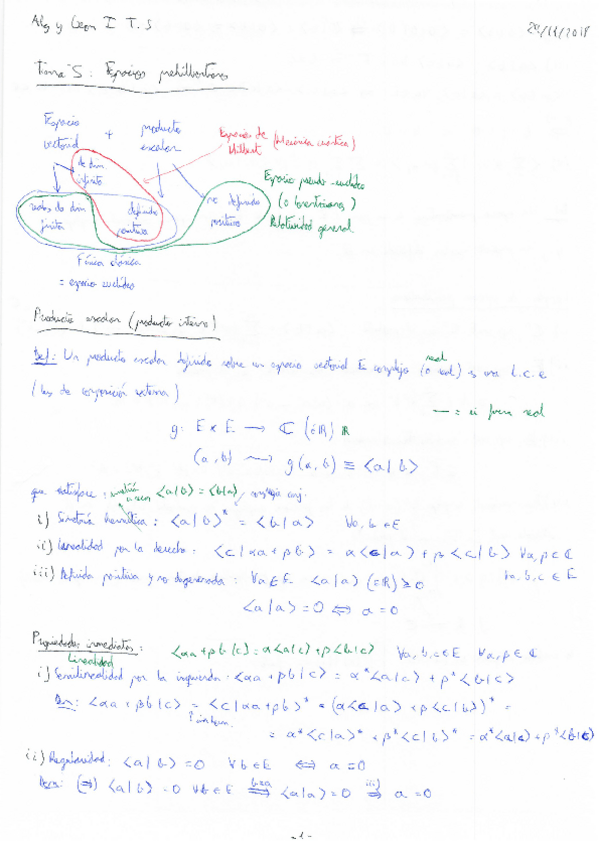 Alg y Geom I T.5
29/11/2018
Tema 5: Espacios prehilbertianos
Espacio vectorial + producto escalar
Espacios de Hilbert (Mecánica cuántica)
de dim infinita
reales de dim finita
definido positivo
no definido positivo
Espacio pseudo-euclídeo
(o lorentziano)
Relatividad general
Física clásica
= espacio euclídeo
Producto escalar (producto interno)
Def: Un producto escalar definido sobre un espacio vectorial E complejo (o real) es una l.c.e
real
(ley de composición externa)
— = si fuera real
g: E × E → ℂ (∈ℝ) ℝ
(a, b) ⟿ g(a, b) ≡ <a|b>
que satisface: simetría <a|b> = <b|a>
i) Simetría hermítica: <a|b>* = <b|a> ∀a, b ∈ E
ii) Linealidad por la derecha: <c|αa + βb> = α<c|a> + β<c|b> ∀α, β ∈ ℂ
∀a, b, c ∈ E
iii) Definida positiva y no degenerada: ∀a ∈ E <a|a> (∈ℝ) ≥ 0
<a|a> = 0 ⟺ a = 0
Propiedades inmediatas: <αa + βb|c> = α<a|c> + β<b|c> ∀a, b, c ∈ E ∀α, β ∈ ℂ
Linealidad
i) Semilinealidad por la izquierda: <αa + βb|c> = α*<a|c> + β*<b|c>
Dem: <αa + βb|c> = <c|αa + βb>* = (α<c|a> + β<c|b>)* =
= α*<c|a>* + β*<c|b>* = α*<a|c> + β*<b|c>
ii) Regularidad: <a|b> = 0 ∀b ∈ E ⟺ a = 0
Dem: (⇒) <a|b> = 0 ∀b ∈ E ⟹ b=a <a|a> = 0 ⟹ iii) a = 0
-1-